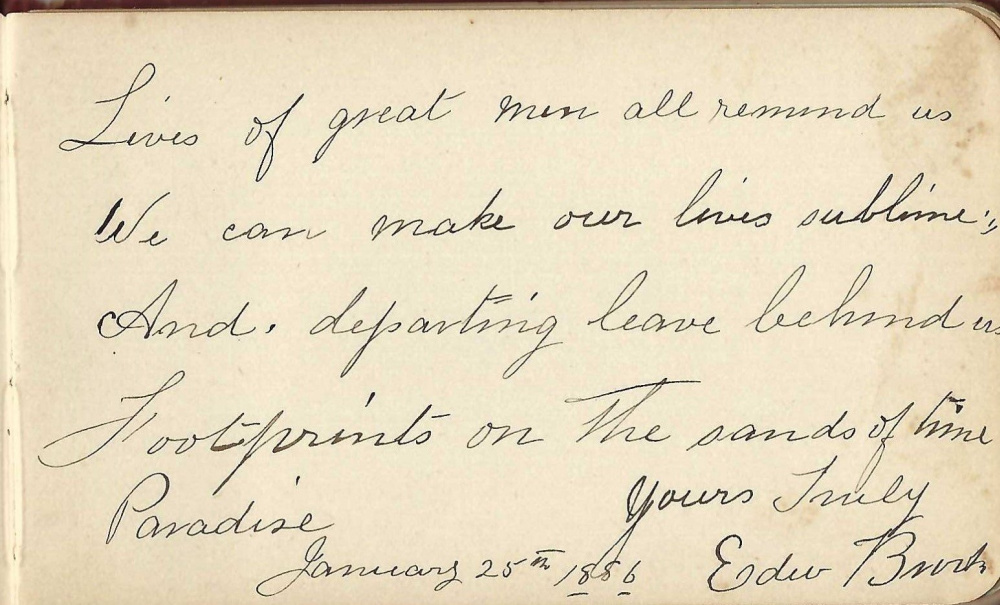 Lives of great men all remind us
We can make our lives sublime;,
And. departing leave behind us
Footprints on The sands of time
Paradise
Yours Truly
January 25th 1886